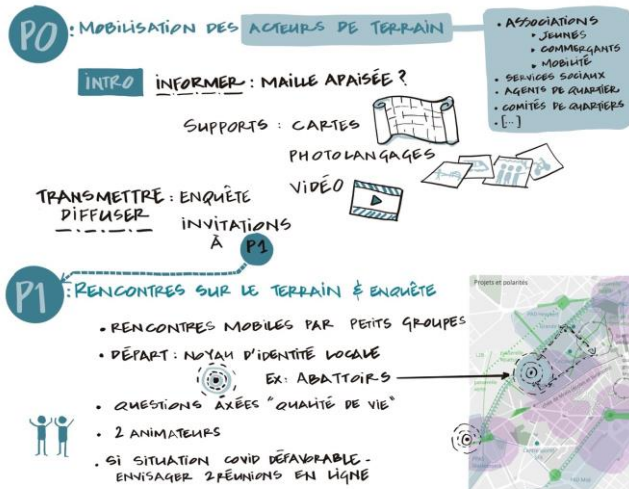 P0 : MOBILISATION DES ACTEURS DE TERRAIN
• ASSOCIATIONS
• JEUNES
• COMMERÇANTS
• MOBILITÉ
• SERVICES SOCIAUX
• AGENTS DE QUARTIER
• COMITÉS DE QUARTIERS
• [...]
INTRO INFORMER : MAILLE APAISÉE ?
SUPPORTS : CARTES
PHOTOLANGAGES
VIDÉO
TRANSMETTRE : ENQUÊTE
DIFFUSER
INVITATIONS
À P1
P1 : RENCONTRES SUR LE TERRAIN & ENQUÊTE
• RENCONTRES MOBILES PAR PETITS GROUPES
• DÉPART : NOYAU D'IDENTITÉ LOCALE
EX: ABATTOIRS
• QUESTIONS AXÉES "QUALITÉ DE VIE"
• 2 ANIMATEURS
• SI SITUATION COVID DÉFAVORABLE -
ENVISAGER 2 RÉUNIONS EN LIGNE
Projets et polarités